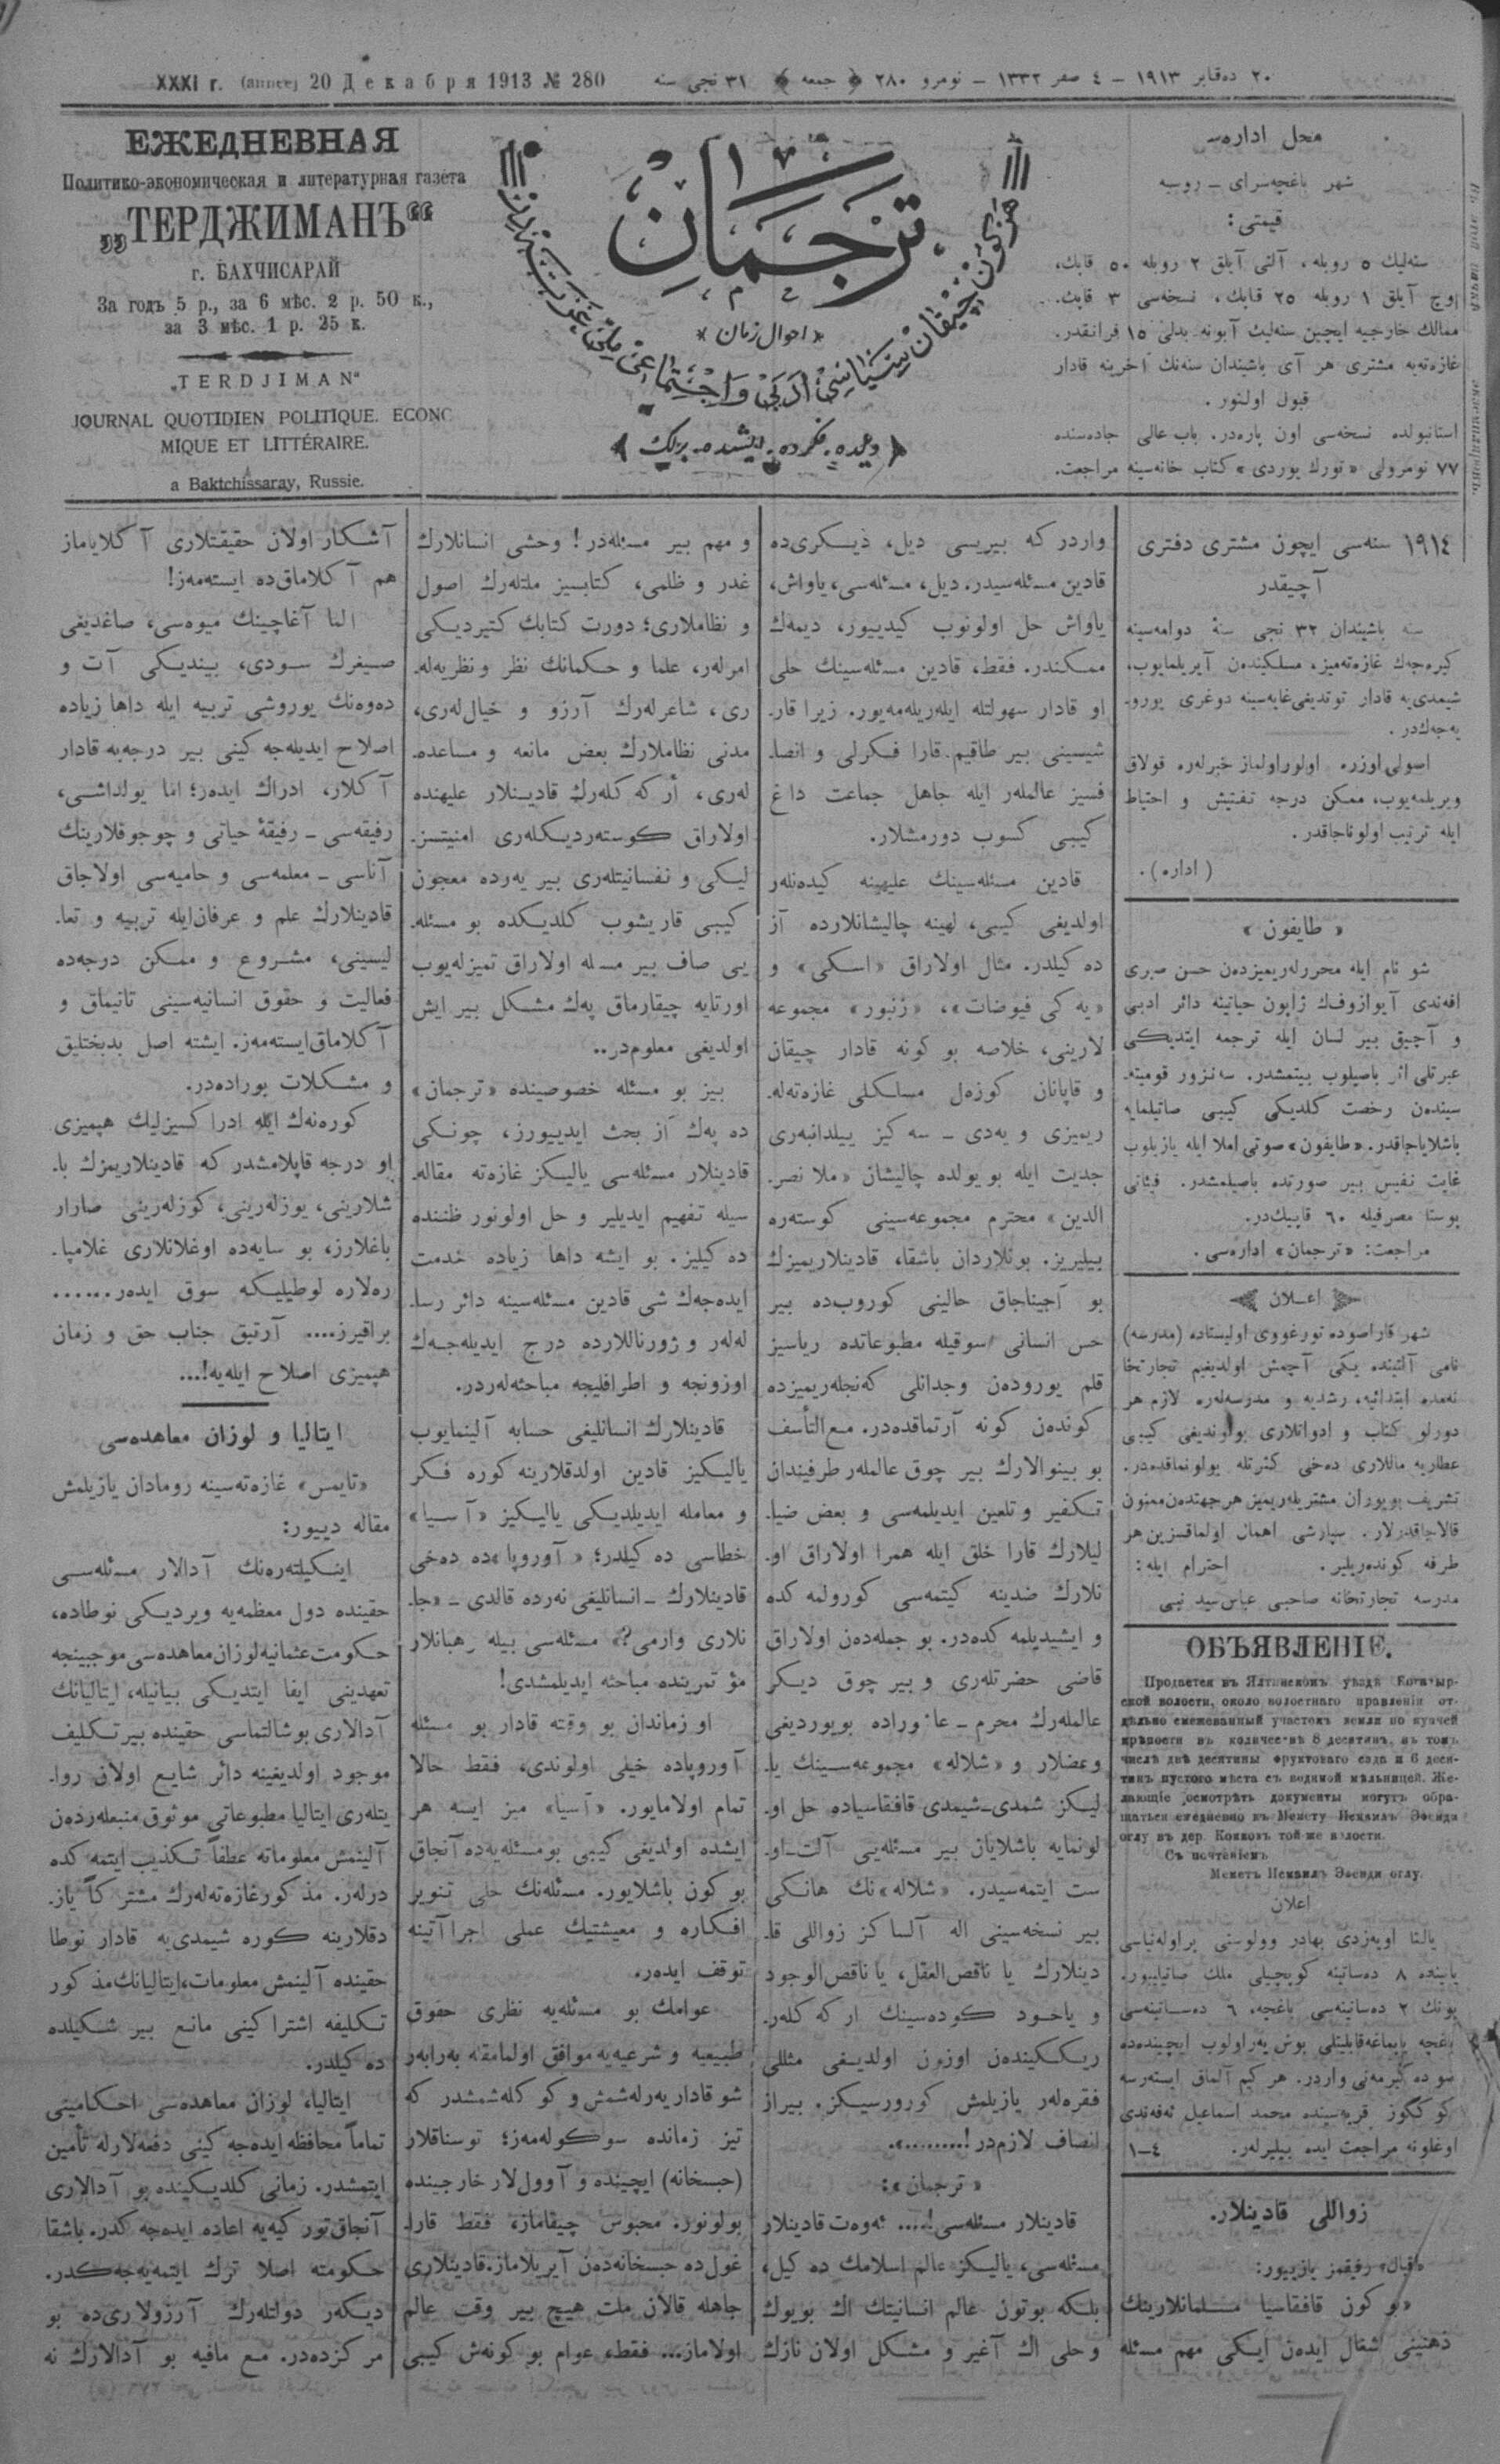 XXXI г. (annee) 20 Декабря 1913 № 280
٢٠ ده‌قابر ١٩١٣ – ٤ صفر ١٣٣٢ – نومرو ٢٨٠ ﴿ جمعه ﴾ ٣١ نجی سنه
ЕЖЕДНЕВНАЯ
Политико-экономическая и литературная газета
„ТЕРДЖИМАНЪ“
г. БАХЧИСАРАЙ
За годъ 5 р., за 6 мѣс. 2 р. 50 к.,
за 3 мѣс. 1 р. 25 к.
„TERDJIMAN“
JOURNAL QUOTIDIEN POLITIQUE. ECONO
MIQUE ET LITTÉRAIRE.
a Baktchissaray, Russie.
ترجمان
* احوال زمان *
هر كون چیقان سیاسی ادبی و اجتماعی ملی غزته‌در
﴿ دیلده، فكرده، ایشده، برلیك ﴾
محل اداره‌سی
شهر باغچه‌سرای – روسیه
قیمتی:
سنه‌لیك ٥ روبله، آلتی آیلق ٢ روبله ٥٠ قاپك،
اوچ آیلق ١ روبله ٢٥ قاپك، نسخه‌سی ٣ قاپك.
ممالك خارجیه ایچین سنه‌لیك آبونه بدلی ١٥ فرانقدر.
غازه‌ته‌یه مشتری هر آی باشیندان سنه‌نك آخرینه قادار
قبول اولنور.
استانبولده نسخه‌سی اون پاره‌در. باب عالی جاده‌سنده
٧٧ نومرولی «تورك یوردی» كتاب خانه‌سینه مراجعت.
١٩١٤ سنه‌سی ایچون مشتری دفتری
آچیقدر
سنه باشیندان ٣٢ نجی سنهٔ دوامه‌سینه
كیره‌جه‌ك غازه‌ته‌میز، مسلكیندن آیریلمایوب،
شیمدی‌یه قادار توتدیغی غایه‌سینه دوغری یورو-
یه‌جه‌كدر.
اصولی اوزره اولور اولماز خبرلره قولاق
ویریلمه‌یوب، ممكن درجه تفتیش و احتیاط
ایله ترتیب اولوناجاقدر.
(اداره).
« طایفون »
شو نام ایله محررلریمیزدن حسن صبری
افه‌ندی آیوازوف‌ك ژاپون حیاتینه دائر ادبی
و آچیق بیر لسان ایله ترجمه ایتدیكی
عبرتلی اثر باصیلوب بیتمشدر. سه‌نزور قومیته-
سیندن رخصت كلدیكی كیبی صاتیلمایه
باشلایاجاقدر. «طایفون» صوتی املا ایله یازیلوب
غایت نفیس بیر صورتده باصیلمشدر. فیئاتی
پوستا مصرفیله ٦٠ قاپیك‌در.
مراجعت: «ترجمان» اداره‌سی.
اعـلان
شهر قاراصوده تورغووی اولیستاده (مدرسه)
نامی آلتینده یكی آچمش اولدیغیم تجارتخا
نه‌مده ابتدائیه، رشدیه و مدرسه‌لره لازم هر
دورلو كتاب و ادواتلاری بولوندیغی كیبی
عطاریه ماللاری ده‌خی كثرتله بولونماقده‌در.
تشریف بویوران مشتریلریمیز هر جهتدن ممنون
قالاجاقدرلار. سپارشی اهمال اولماقسزین هر
طرفه كونده‌ریلیر. احترام ایله:
مدرسه تجارتخانه صاحبی عباس سید نبی
ОБЪЯВЛЕНІЕ.
Продается въ Ялтинскомъ уѣздѣ Богатыр-
ской волости, около волостнаго правленія от-
дѣльно смежеванный участокъ земли по купчей
крѣпости въ количествѣ 8 десятинъ, въ томъ
числѣ двѣ десятины фруктоваго сада и 6 деся-
тинъ пустого мѣста съ водяной мѣльницей. Же-
лающіе осмотрѣть документы могутъ обра-
щаться ежедневно къ Мемету Исмаилъ Эфенди
оглу въ дер. Коккозъ той же волости.
Съ почтеніемъ
Меметъ Исмаилъ Эфенди оглу.
اعلان
یالتا اویه‌زدی بهادر وولوستی براوله‌نیاسی
یانینده ٨ ده‌ساتینه كوپچیلی ملك صاتیلیور.
بونك ٢ ده‌ساتینه‌سی باغچه، ٦ ده‌ساتینه‌سی
باغچه یاپماغه قابلیتلی بوش یه‌ر اولوب ایچینده‌ده
سو ده‌گیرمه‌نی واردر. هر كیم آلماق ایسته‌رسه
كوككوز قریه‌سینده محمد اسماعیل ئه‌فه‌ندی
اوغلونه مراجعت ایده بیلیرلر. ٤–١
زواللی قادینلار.
«اقبال» رفیقمز یازییور:
«بو كون قافقاسیا مسلمانلارینك
ذهنینی شغال ایده‌ن ایكی مهم مسئله
واردر كه بیریسی دیل، دیكری‌ده
قادین مسئله‌سیدر. دیل، مسئله‌سی، یاواش،
یاواش حل اولونوب كیدییور، دیمه‌ك
ممكندر. فقط، قادین مسئله‌سینك حلی
او قادار سهولتله ایله‌ریله‌مه‌یور. زیرا قار-
شیسینی بیر طاقیم قارا فكرلی و انصا-
فسیز عالملر ایله جاهل جماعت داغ
كیبی كسوب دورمشلار.
قادین مسئله‌سینك علیهینه كیده‌نلر
اولدیغی كیبی، لهینه چالیشانلارده آز
ده كیلدر. مثال اولاراق «اسكی» و
«یه كی فیوضات»، «زنبور» مجموعه
لارینی، خلاصه بو كونه قادار چیقان
و قاپانان كوزه‌ل مسلكلی غازه‌ته‌له-
ریمیزی و یه‌دی – سه كیز ییلدانبه‌ری
جدیت ایله بو یولده چالیشان «ملا نصر-
الدین» محترم مجموعه‌سینی كوسته‌ره
بیلیریز. بونلاردان باشقا، قادینلاریمیزك
بو آجیناجاق حالینی كوروب‌ده بیر
حس انسانی سوقیله مطبوعاتده ریاسیز
قلم یوروده‌ن وجدانلی كه‌نجله‌ریمیزده
كونده‌ن كونه آرتماقده‌در. مع التأسف
بو بینوالارك بیر چوق عالملر طرفیندان
تكفیر و تلعین ایدیلمه‌سی و بعض ضیا-
لیلارك قارا خلق ایله همرا اولاراق او-
نلارك ضدینه كیتمه‌سی كورولمه كده
و ایشیدیلمه كده‌در. بو جمله‌ده‌ن اولاراق
قاضی حضرتله‌ری و بیر چوق دیكر
عالمله‌رك محرم – عاشوراده بویوردیغی
وعضلار و «شلاله» مجموعه‌سینك یا-
لیكز شمدی-شیمدی قافقاسیاده حل او-
لونمایه باشلایان بیر مسئله‌یی آلت-او-
ست ایتمه‌سیدر. «شلاله»نك هانكی
بیر نسخه‌سینی اله آلساكز زواللی قا-
دینلارك یا ناقص العقل، یا ناقص الوجود
و یاخود كوده‌سینك ار كه كله‌ر-
ریكیندن اوزون اولدیغی مثللی
فقره‌لر یازیلمش كورورسیكز. بیراز
انصاف لازم‌در!.........».
« ترجمان »:
قادینلار مسئله‌سی!.... ئه‌وه‌ت قادینلار
مسئله‌سی، یالیكز عالم اسلامك ده كیل،
بلكه بوتون عالم انسانیتك اك بویوك
و حلی اك آغیر و مشكل اولان نازك
و مهم بیر مسئله‌در! وحشی انسانلارك
غدر و ظلمی، كتابسیز ملتلرك اصول
و نظاملاری؛ دورت كتابك كتیردیكی
امرلر، علما و حكمانك نظر و نظریه‌له-
ری، شاعرله‌رك آرزو و خیال‌له‌ری،
مدنی نظاملارك بعض مانعه و مساعده-
له‌ری، أركه كله‌رك قادینلار علیهنده
اولاراق كوسته‌ردیكله‌ری امنیتسز-
لیكی و نفسانیتله‌ری بیر یه‌رده معجون
كیبی قاریشوب كلدیكده بو مسئله-
یی صاف بیر مسله اولاراق تمیزله‌یوب
اورتایه چیقارماق په‌ك مشكل بیر ایش
اولدیغی معلوم‌در..
بیز بو مسئله خصوصینده «ترجمان»
ده په‌ك آز بحث ایدییورز، چونكی
قادینلار مسئله‌سی یالیكز غازه‌ته مقاله-
سیله تفهیم ایدیلیر و حل اولونور ظننده
ده كیلیز. بو ایشه داها زیاده خدمت
ایده‌جه‌ك شی قادین مسئله‌سینه دائر رسا-
له‌لر و ژورناللارده درج ایدیله‌جه‌ك
اوزونجه و اطرافلیجه مباحثه‌له‌ردر.
قادینلارك انسانلیغی حسابه آلینمایوب
یالیكیز قادین اولدقلارینه كوره فكر
و معامله ایدیلدیكی یالیكیز «آسیا»
خطاسی ده كیلدر؛ «آوروپا»ده ده‌خی
قادینلارك – انسانلیغی نه‌رده قالدی – «جا-
نلاری وارمی؟» مسئله‌سی بیله رهبانلار
مؤتمرینده مباحثه ایدیلمشدی!
او زماندان بو وقته قادار بو مسئله
آوروپاده خیلی اولوندی، فقط حالا
تمام اولامایور. «آسیا» میز ایسه هر
ایشده اولدیغی كیبی بو مسئله‌یه‌ده آنجاق
بو كون باشلایور. مسئله‌نك حلی تنویر
افكاره و معیشتیك عملی اجراآتینه
توقف ایده‌ر.
عوامك بو مسئله‌یه نظری حقوق
طبیعیه و شرعیه‌یه موافق اولمامقله به‌رابه‌ر
شو قادار یه‌رله‌شمش و كو كله‌شمشدر كه
تیز زمانده سوكوله‌مه‌ز؛ توسناقلار
(حبسخانه) ایچینده و آوول‌لار خارجینده
بولونور. محبوس چیقاماز، فقط قارا-
غول‌ده حبسخانه‌دن آیریلاماز. قادینلاری
جاهله قالان ملت هیچ بیر وقت عالم
اولاماز... فقط، عوام بو كونه‌ش كیبی
آشكار اولان حقیقتلاری آ كلایاماز
هم آ كلاماق‌ده ایسته‌مه‌ز!
الما آغاچینك میوه‌سی، صاغدیغی
صیغرك سودی، بیندیكی آت و
ده‌وه‌نك یوروشی تربیه ایله داها زیاده
اصلاح ایدیله‌جه كینی بیر درجه‌یه قادار
آ كلار، ادراك ایده‌ر؛ اما یولداشی،
رفیقه‌سی – رفیقهٔ حیاتی و چوجوقلارینك
آناسی – معلمه‌سی و حامیه‌سی اولاجاق
قادینلارك علم و عرفان ایله تربیه و تعا-
لیسینی، مشروع و ممكن درجه‌ده
فعالیت و حقوق انسانیه‌سینی تانیماق و
آ كلاماق ایسته‌مه‌ز. ایشته اصل بدبختلیق
و مشكلات بوراده‌در.
كوره‌نه‌ك ایله ادراكسیزلیك هپمیزی
او درجه قاپلامشدر كه قادینلاریمزك با-
شلارینی، یوزله‌رینی، كوزله‌رینی صارار
باغلارز، بو سایه‌ده اوغلانلاری غلامپا-
ره‌لاره لوطیلیكه سوق ایده‌ر......
براقیرز.... آرتیق جناب حق و زمان
هپمیزی اصلاح ایله‌یه!...
ایتالیا و لوزان معاهده‌سی
«تایمس» غازه‌ته‌سینه رومادان یازیلمش
مقاله دییور:
اینكیلته‌ره‌نك آدالار مسئله‌سی
حقینده دول معظمه‌یه ویردیكی نوطاده،
حكومت عثمانیه لوزان معاهده‌سی موجبینجه
تعهدینی ایفا ایتدیكی بیانیله، ایتالیانك
آدالاری بوشالتماسی حقینده بیر تكلیف
موجود اولدیغینه دائر شایع اولان روا-
یتله‌ری ایتالیا مطبوعاتی موثوق منبعلرده‌ن
آلینمش معلوماته عطفاً تكذیب ایتمه كده
درلر. مذكور غازه‌ته‌له‌رك مشتركاً یاز-
دقلارینه كوره شیمدی‌یه قادار نوطا
حقینده آلینمش معلومات، ایتالیانك مذكور
تكلیفه اشتراكینی مانع بیر شكیلده
ده كیلدر.
ایتالیا، لوزان معاهده‌سی احكامینی
تماماً محافظه ایده‌جه كینی دفعه‌لارله تأمین
ایتمشدر. زمانی كلدیكینده بو آدالاری
آنجاق تور كیه‌یه اعاده ایده‌جه كدر. باشقا
حكومته اصلا ترك ایتمه‌یه‌جه‌كدر.
دیكه‌ر دولتله‌رك آرزولاری‌ده بو
مركزده‌در. مع مافیه بو آدالارك نه